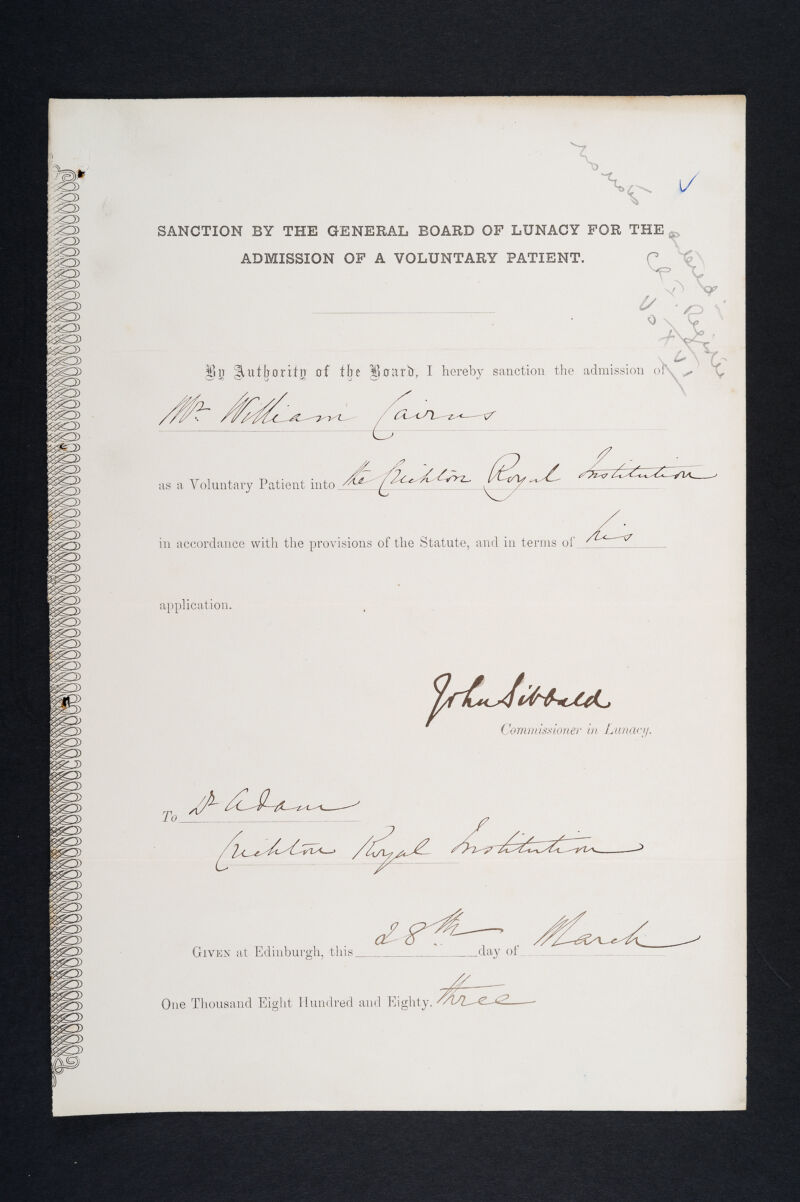 No notes
entered -
C.R.I. Register
Vo XVI
SANCTION BY THE GENERAL BOARD OF LUNACY FOR THE
ADMISSION OF A VOLUNTARY PATIENT.
By Authority of the Board, I hereby sanction the admission of
Mr William Cairns
as a Voluntary Patient into the Crichton Royal Institution
in accordance with the provisions of the Statute, and in terms of his
application.
John Sibbald
Commissioner in Lunacy.
To Dr Adam
Crichton Royal Institution
GIVEN at Edinburgh, this 28th day of March
One Thousand Eight Hundred and Eighty. three